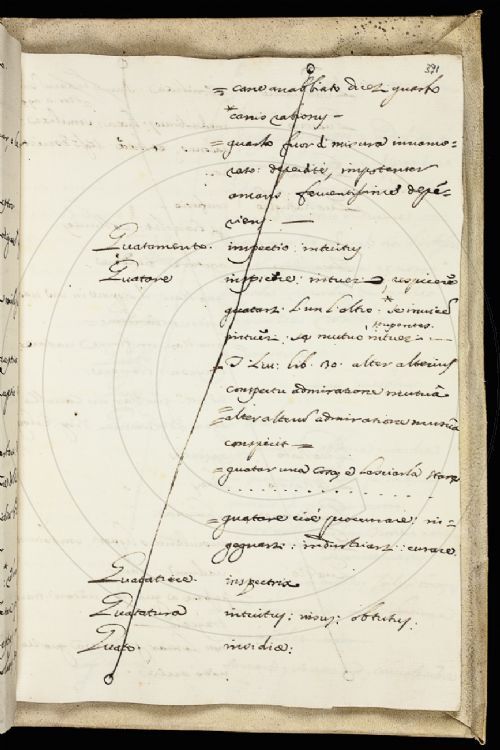 371
= cane arrabbiato dicez guasto
canis rabiosus —
= guasto fuor di misura innamo-
rato: deperditè, impotenter
amans ferventissimè depe-
riens. —
Guatamento. inspectio: intuitus
Guatare inspicere: intueri, respicere
guatarsi l'un l'altro: se mutuò
stupentes
intueri: se mutuò intueri —
T. Liv: lib. 30. alter alterius
conspectu admiratione mutuâ
= alter alterius admiratione mutuâ
conspicit =
= guatar una cosa e lasciarla stare
. . . . . . . . . . . .
= guatare cioè procurare: in-
gegnarsi: industriarsi: curare
Guatatrice. inspectrix
Guatatura intuitus: visus: obtutus:
Guato. insidiæ: